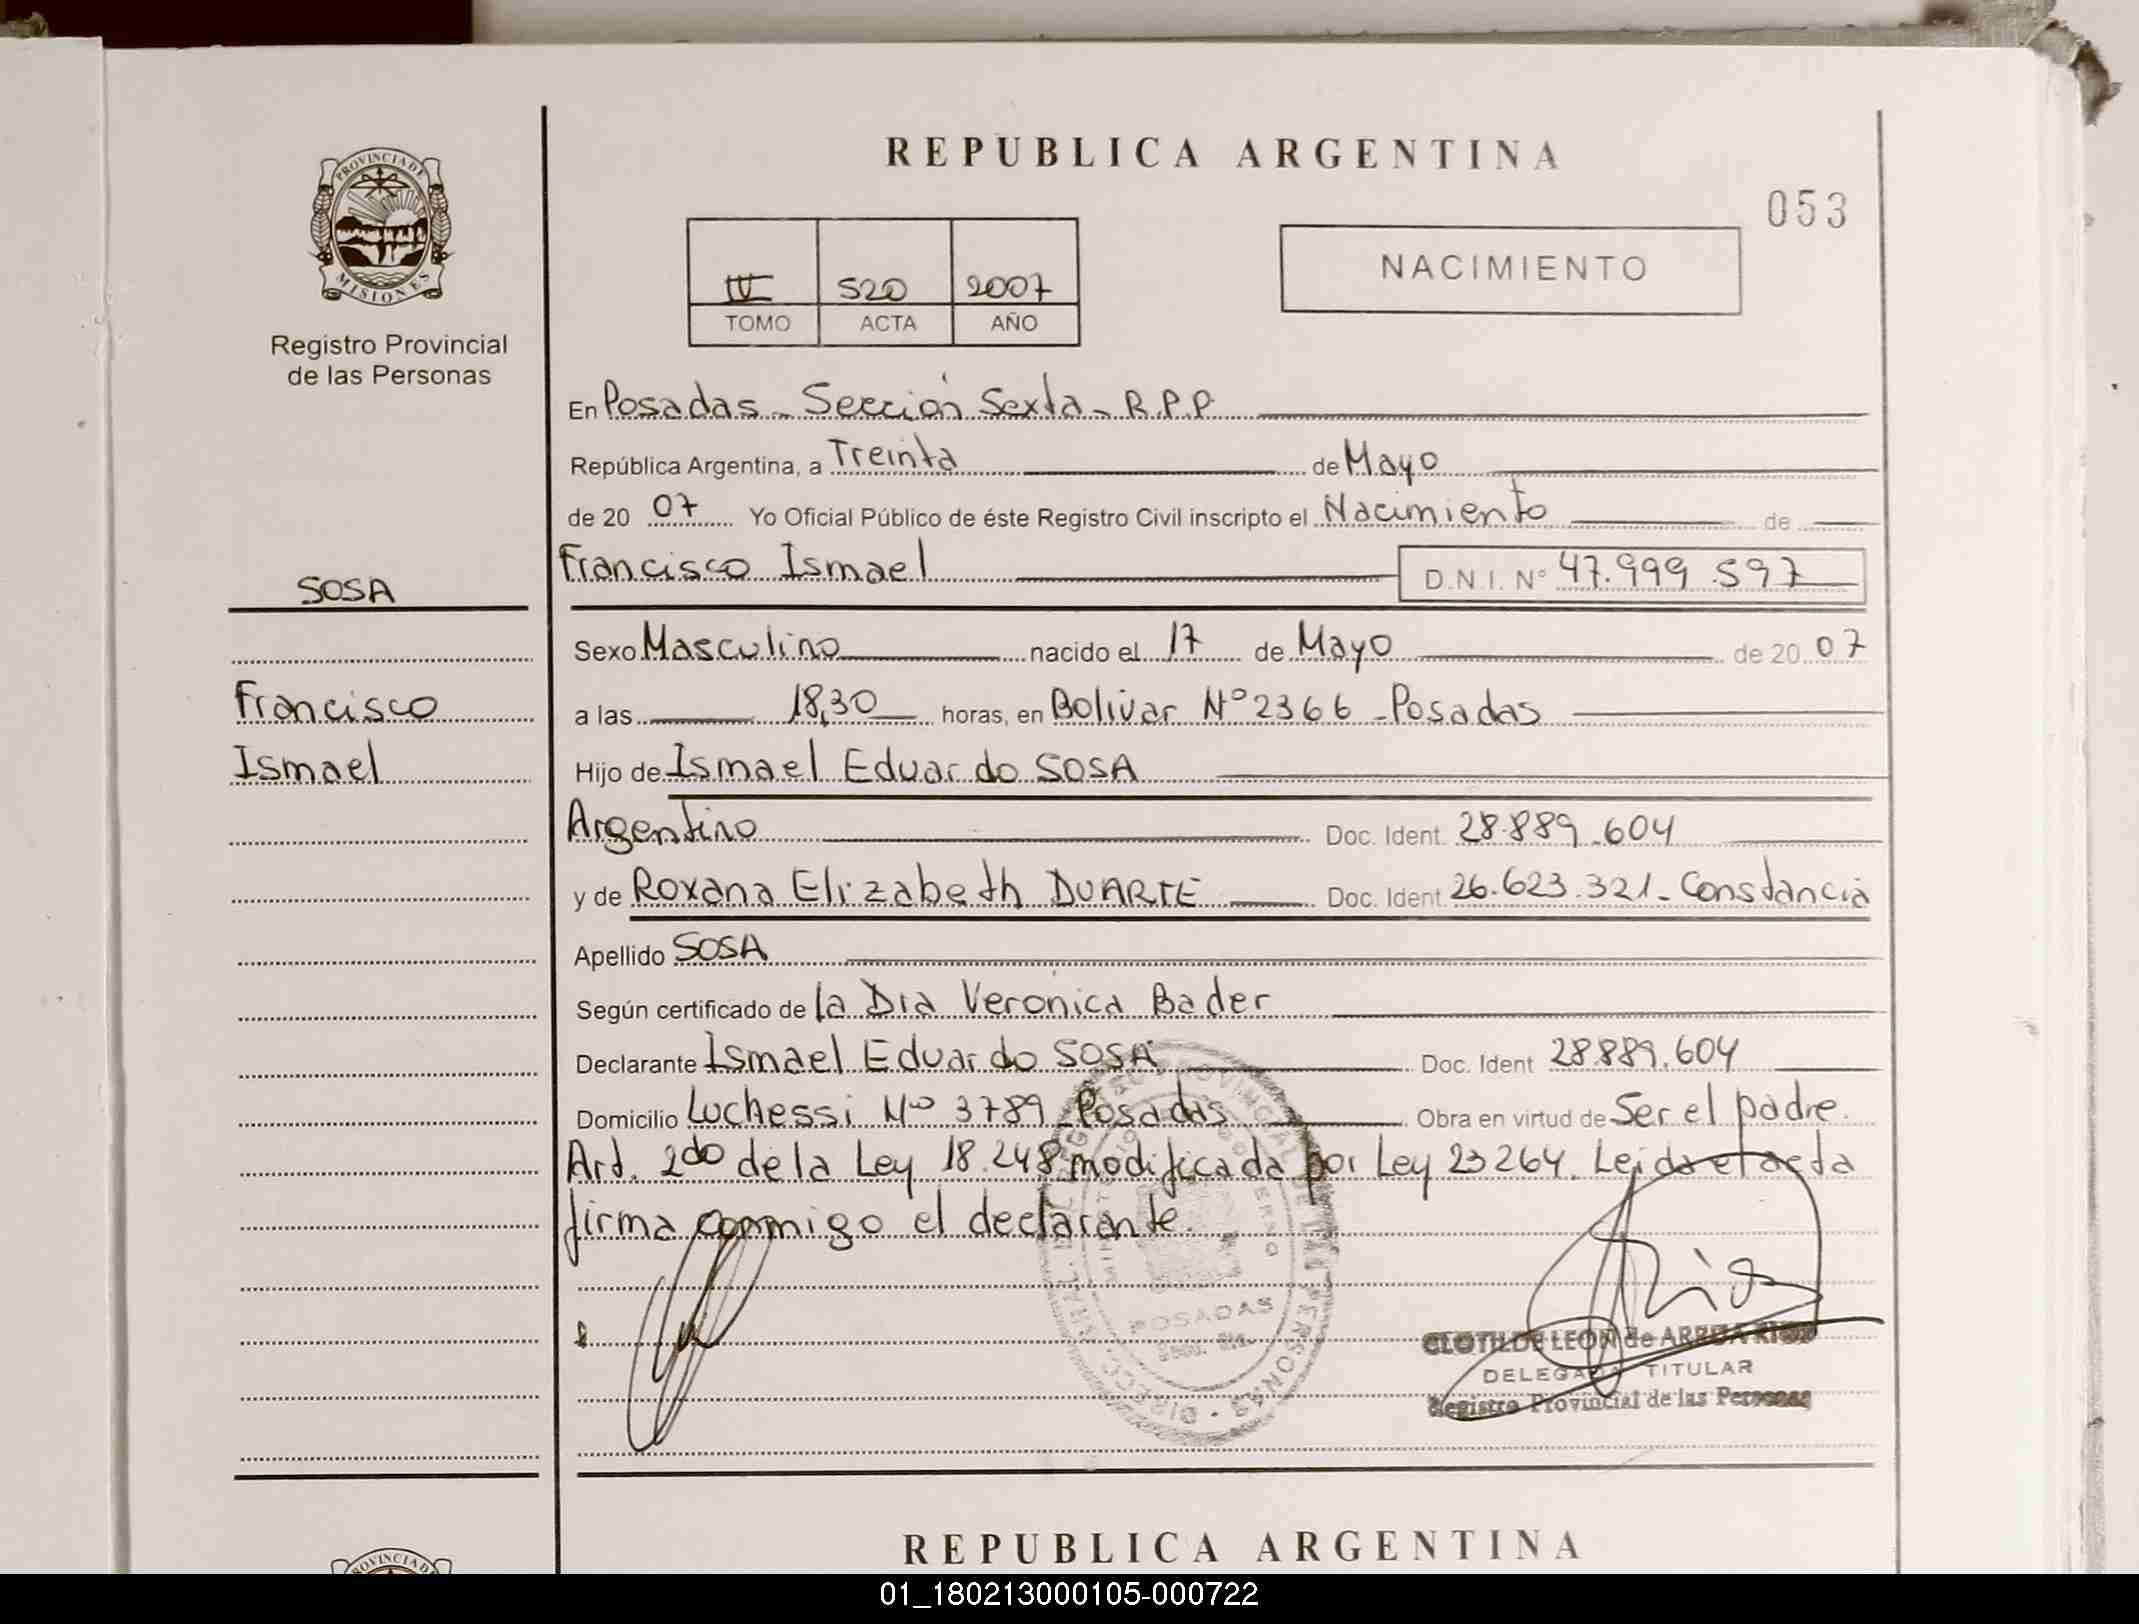 REPUBLICA ARGENTINA
053
IV 520 2007
TOMO ACTA AÑO
NACIMIENTO
PROVINCIA DE
MISIONES
Registro Provincial
de las Personas
En Posadas - Sección Sexta - R.P.P.
República Argentina, a Treinta de Mayo
de 20 07 Yo Oficial Público de éste Registro Civil inscripto el Nacimiento de
Francisco Ismael D.N.I. N° 47.999.597
SOSA
Sexo Masculino nacido el 17 de Mayo de 20 07
Francisco
a las 18,30 horas, en Bolivar N° 2366 - Posadas
Ismael
Hijo de Ismael Eduardo SOSA
Argentino Doc. Ident. 28.889.604
y de Roxana Elizabeth DUARTE Doc. Ident 26.623.321 - Constancia
Apellido SOSA
Según certificado de la Dra Veronica Bader
Declarante Ismael Eduardo SOSA Doc. Ident 28.889.604
Domicilio Luchessi N° 3789 Posadas Obra en virtud de Ser el padre.
Art. 2do de la Ley 18.248 modificada por Ley 23264. Leida el acta
firma conmigo el declarante.
POSADAS
CLOTILDE LEON de
DELEGADA TITULAR
Registro Provincial de las Personas
REPUBLICA ARGENTINA
PROVINCIA DE
01_180213000105-000722